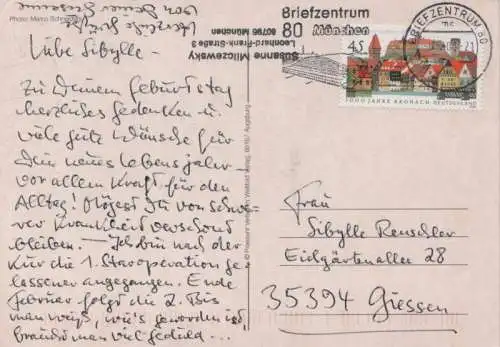 Photo: Marco Schneiders
Liebe Sibylle -
Zu Deinem Geburtstag
herzliches Gedenken u.
viele gute Wünsche für
Dein neues Lebensjahr -
vor allem Kraft für den
Alltag! Mögest Du von schwe-
rer Krankheit verschont
bleiben. - Ich bin nach der
Kur die 1. Staroperation ge-
lassener angegangen. Ende
Februar folgt die 2. Bis
man weiß, wie's geworden ist,
braucht man viel Geduld...
Herzliche Grüße
von Deiner Susanne
Susanne Miliczewsky
Leonhard-Frank-Straße 3
80796 München
Briefzentrum
80 München
BRIEFZENTRUM 80
mc
21
45
1000 JAHRE KRONACH DEUTSCHLAND
Weltbild Verlag, Augsburg
Frau
Sibylle Reuschler
Eidgärtenallee 28
35394 Giessen